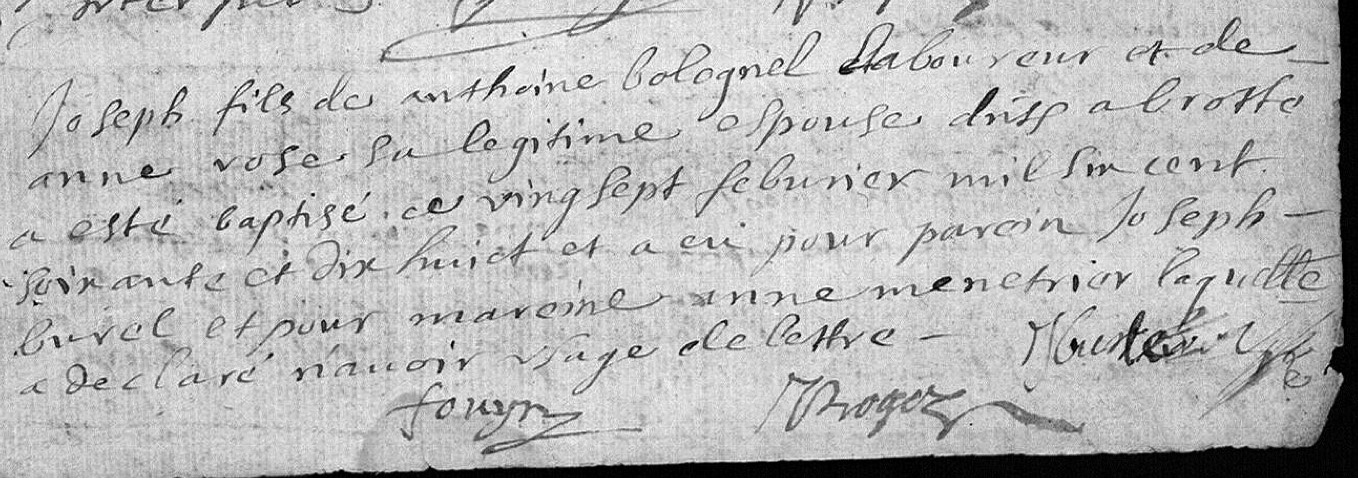 Joseph fils de anthoine bolognel Laboureur et de
anne rose sa legitime espouse dudit abrotte
a esté baptisé ce vingsept feburier mil six cent
soixante et dix huict et a eu pour parein Joseph
burel et pour mareine anne menetrier laquelle
a declaré n'auoir usage de lettre
fouyn Roger